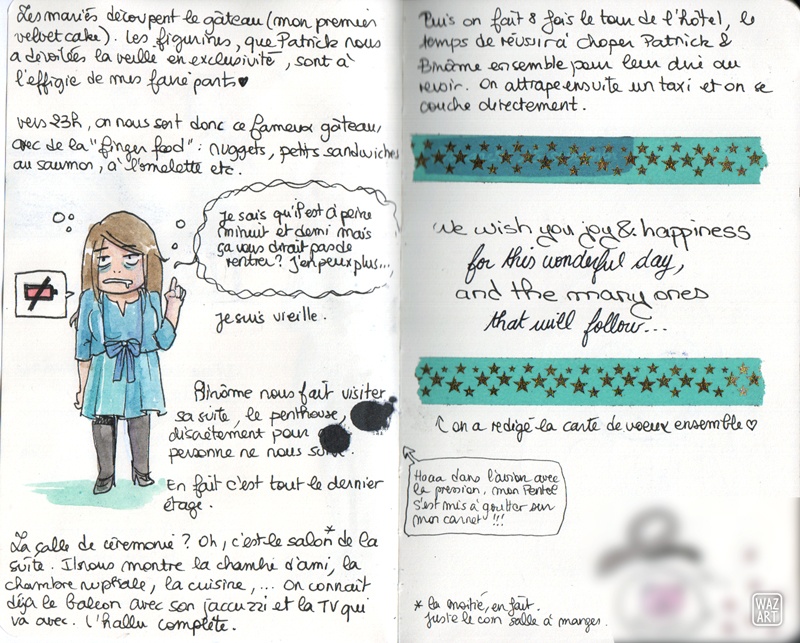 Les mariés découpent le gâteau (mon premier
velvet cake). Les figurines, que Patrick nous
a dévoilées la veille en exclusivité, sont à
l'effigie de mes faire parts ♥
vers 23h, on nous sert donc ce fameux gâteau,
avec de la "finger food" : nuggets, petits sandwiches
au saumon, à l'omelette etc.
Je sais qu'il est à peine
minuit et demi mais
ça vous dirait pas de
rentrer? J'en peux plus...
je suis vieille.
Binôme nous fait visiter
sa suite, le penthouse,
discrètement pour
personne ne nous
En fait c'est tout le dernier
étage.
La salle de cérémonie? Oh, c'est le salon* de la
suite. Il nous montre la chambre d'ami, la
chambre nuptiale, la cuisine,... On connait
déjà le balcon avec son jaccuzzi et la TV qui
va avec. L'hallu complète.
Puis on fait 8 fois le tour de l'hôtel, le
temps de réussir à choper Patrick &
Binôme ensemble pour leur dire au
revoir. On attrape ensuite un taxi et on se
couche directement.
We wish you joy & happiness
for this wonderful day,
and the many ones
that will follow...
on a redigé la carte de voeux ensemble ♡
Haaa dans l'avion avec
la pression, mon Pentel
s'est mis à goutter sur
mon carnet !!!
* la moitié, en fait.
Juste le coin salle à manger.
WAZ
ART